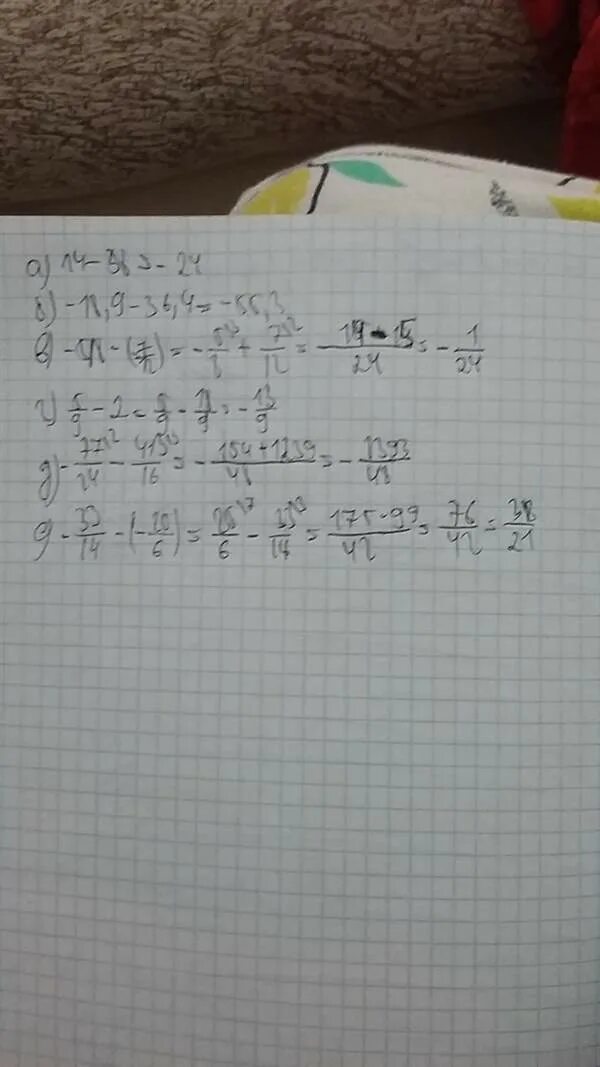 а) 14 - 38 = - 24
б) - 18,9 - 36,4 = - 55,3
в) - 5/8 - (- 7/12) = - 5\3/8 + 7\2/12 = 14 - 15/24 = - 1/24
г) 5/9 - 2 = 5/9 - 18/9 = - 13/9
д) - 77\2/24 - 413\3/16 = - 154 + 1239/48 = - 1393/48
- 33/14 - (- 25/6) = 25\7/6 - 33\3/14 = 175 - 99/42 = 76/42 = 38/21